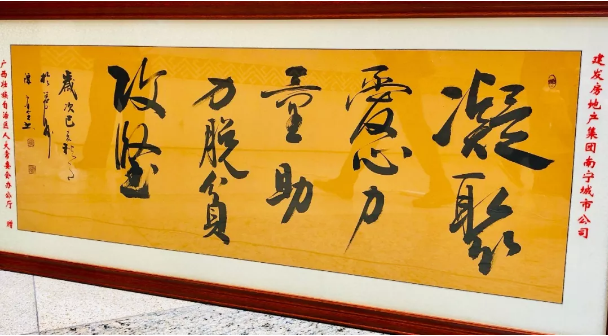 建发房地产集团南宁城市公司
凝聚
愛心力
量助
力脱貧
攻堅
歲次己亥秋月
广西壮族自治区人大常委会办公厅 赠